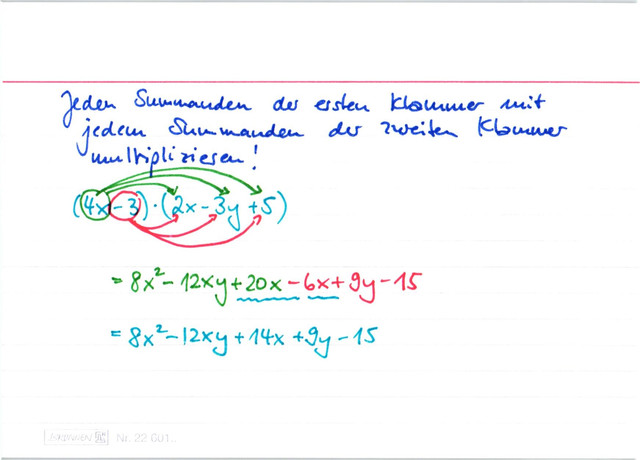 Jeden Summanden der ersten Klammer mit
jedem Summanden der zweiten Klammer
multiplizieren!
(4x-3)·(2x-3y+5)
= 8x²-12xy+20x-6x+9y-15
= 8x²-12xy+14x+9y-15
BRUNNEN Nr. 22 601..